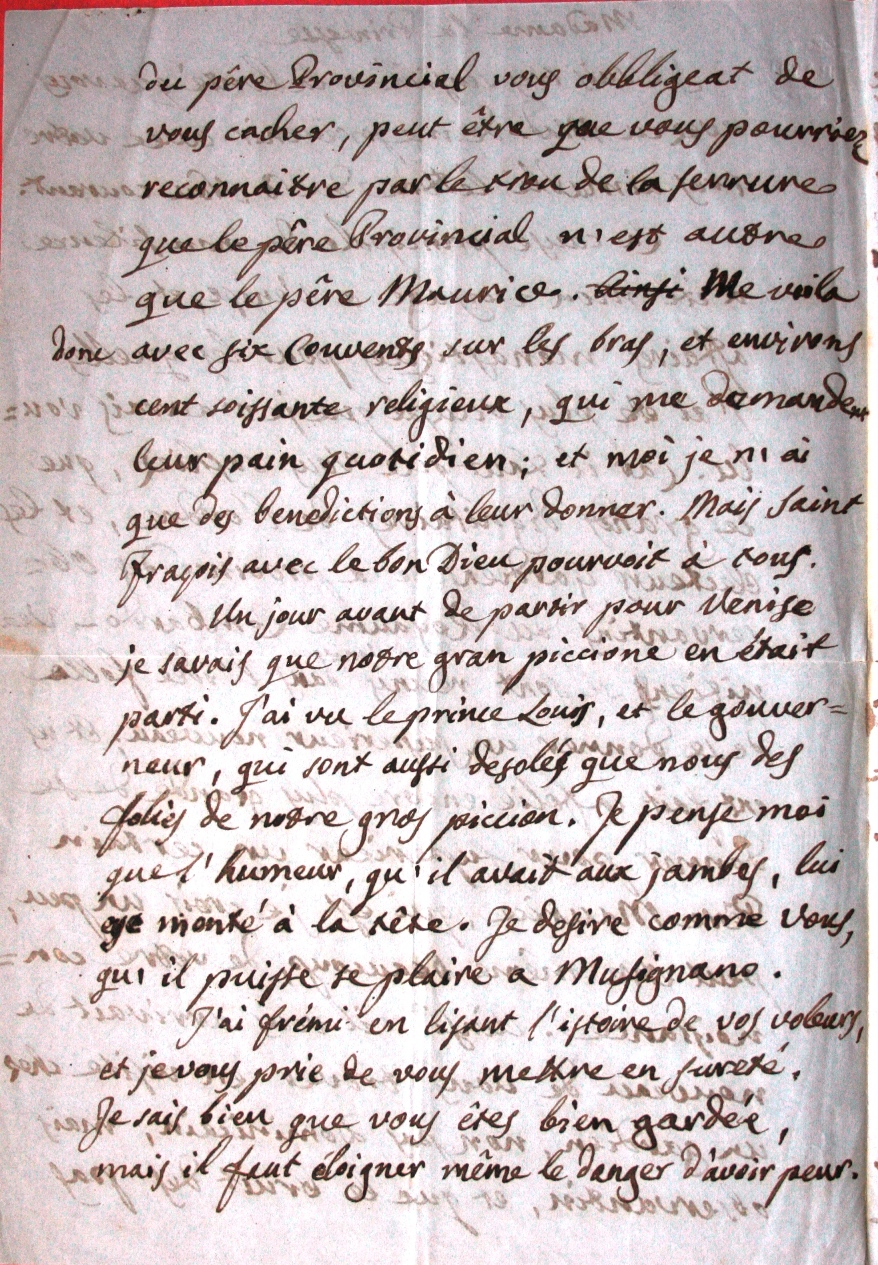 du pêre Provincial vous obbligeat de
vous cacher, peut être que vous pourriez
reconnaitre par le trou de la serrure
que le pêre Provincial n'est autre
que le pêre Maurice. ainsi Me voila
donc avec six Couvents sur les bras, et environs
cent soissante religieux, qui me demandent
leur pain quotidien; et moi je n'ai
que des benedictions à leur donner. Mais Saint
Fraçois avec le bon Dieu pourvoit à tous.
Un jour avant de partir pour Venise
je savais que notre gran piccione en était
parti. J'ai vu le prince Louis, et le gouver=
neur, qui sont aussi desolés que nous des
folies de notre gros piccion. Je pense moi
que l'humeur, qu'il avait aux jambes, lui
est monté à la tête. Je desire comme vous,
qu'il puisse se plaire a Musignano.
J'ai frémi en lisant l'istoire de vos voleurs,
et je vous prie de vous mettre en sureté.
Je sais bien que vous êtes bien gardée,
mais il faut éloigner même le danger d'avoir peur.